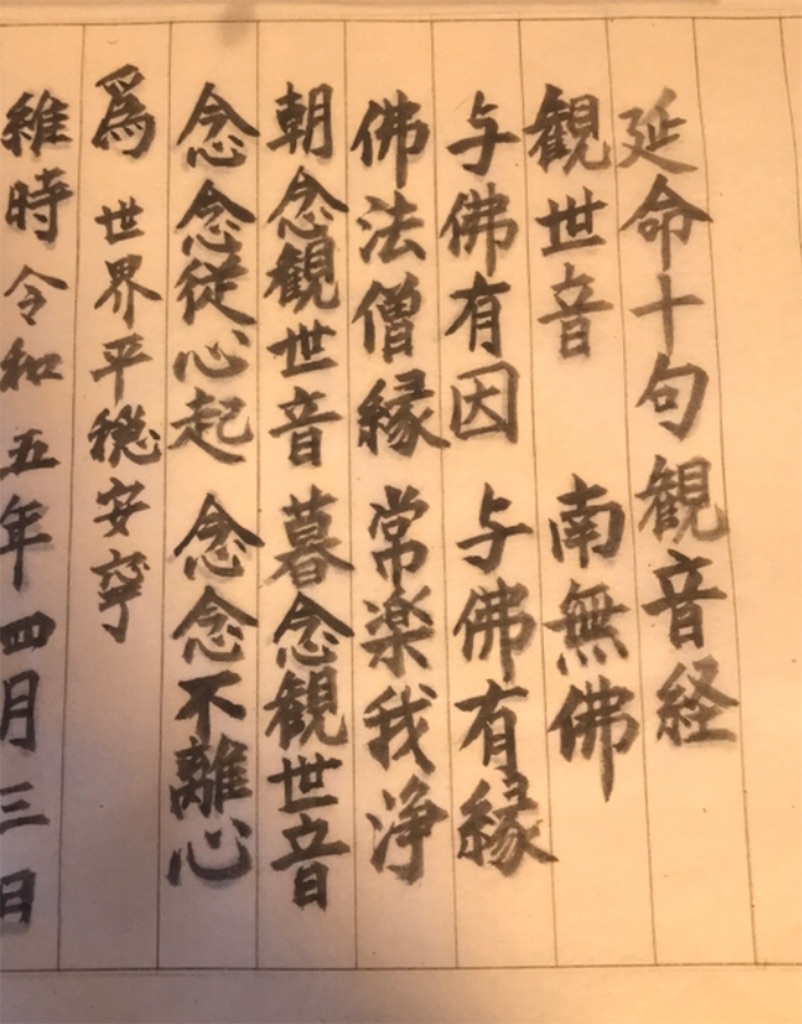 延命十句観音経
観世音 南無佛
与佛有因 与佛有縁
佛法僧縁 常楽我浄
朝念観世音 暮念観世音
念念従心起 念念不離心
為 世界平穏安寧
維時令和五年四月三日